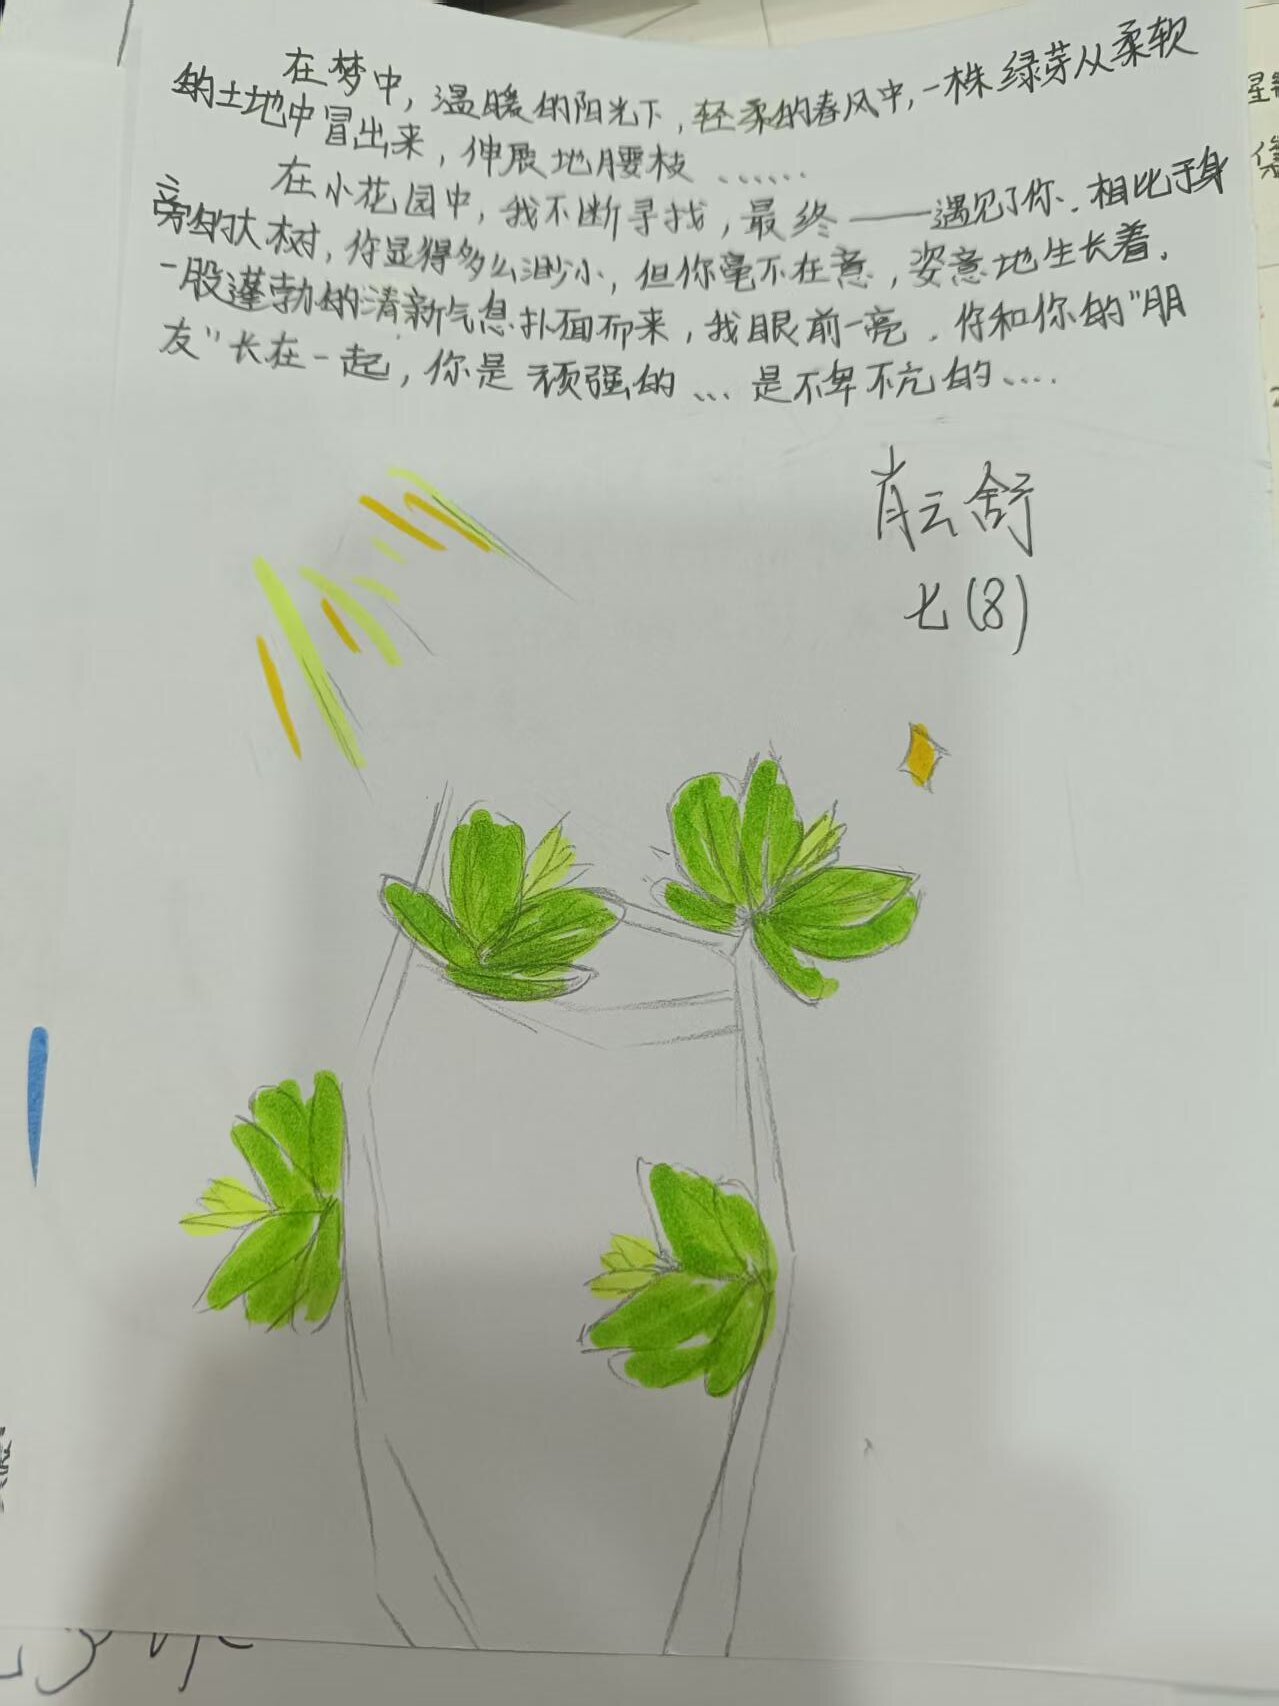 在梦中，温暖的阳光下，轻柔的春风中，一株绿芽从柔软
的土地中冒出来，伸展地腰枝……
在小花园中，我不断寻找，最终——遇见了你．相比于身
旁的大树，你显得多么渺小，但你毫不在意，姿意地生长着．
一股蓬勃的清新气息扑面而来，我眼前一亮．你和你的“朋
友”长在一起，你是顽强的…是不卑不亢的….
肖云舒
七(8)